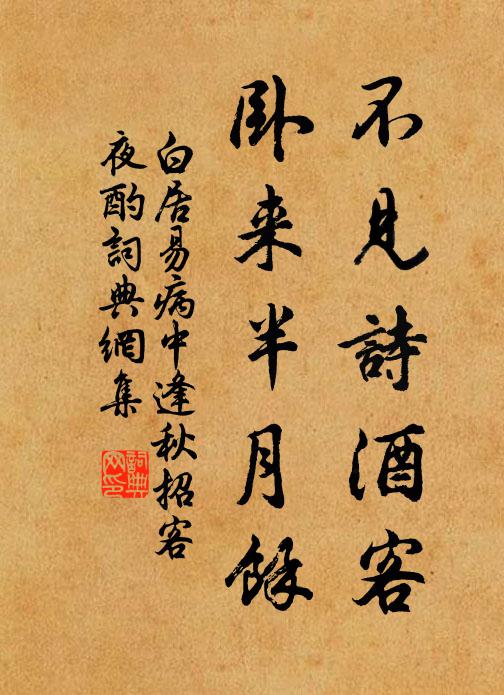 不見詩酒客
臥来半月餘
白居易病中逢秋招客
夜酌詞典網集
詞典
网印